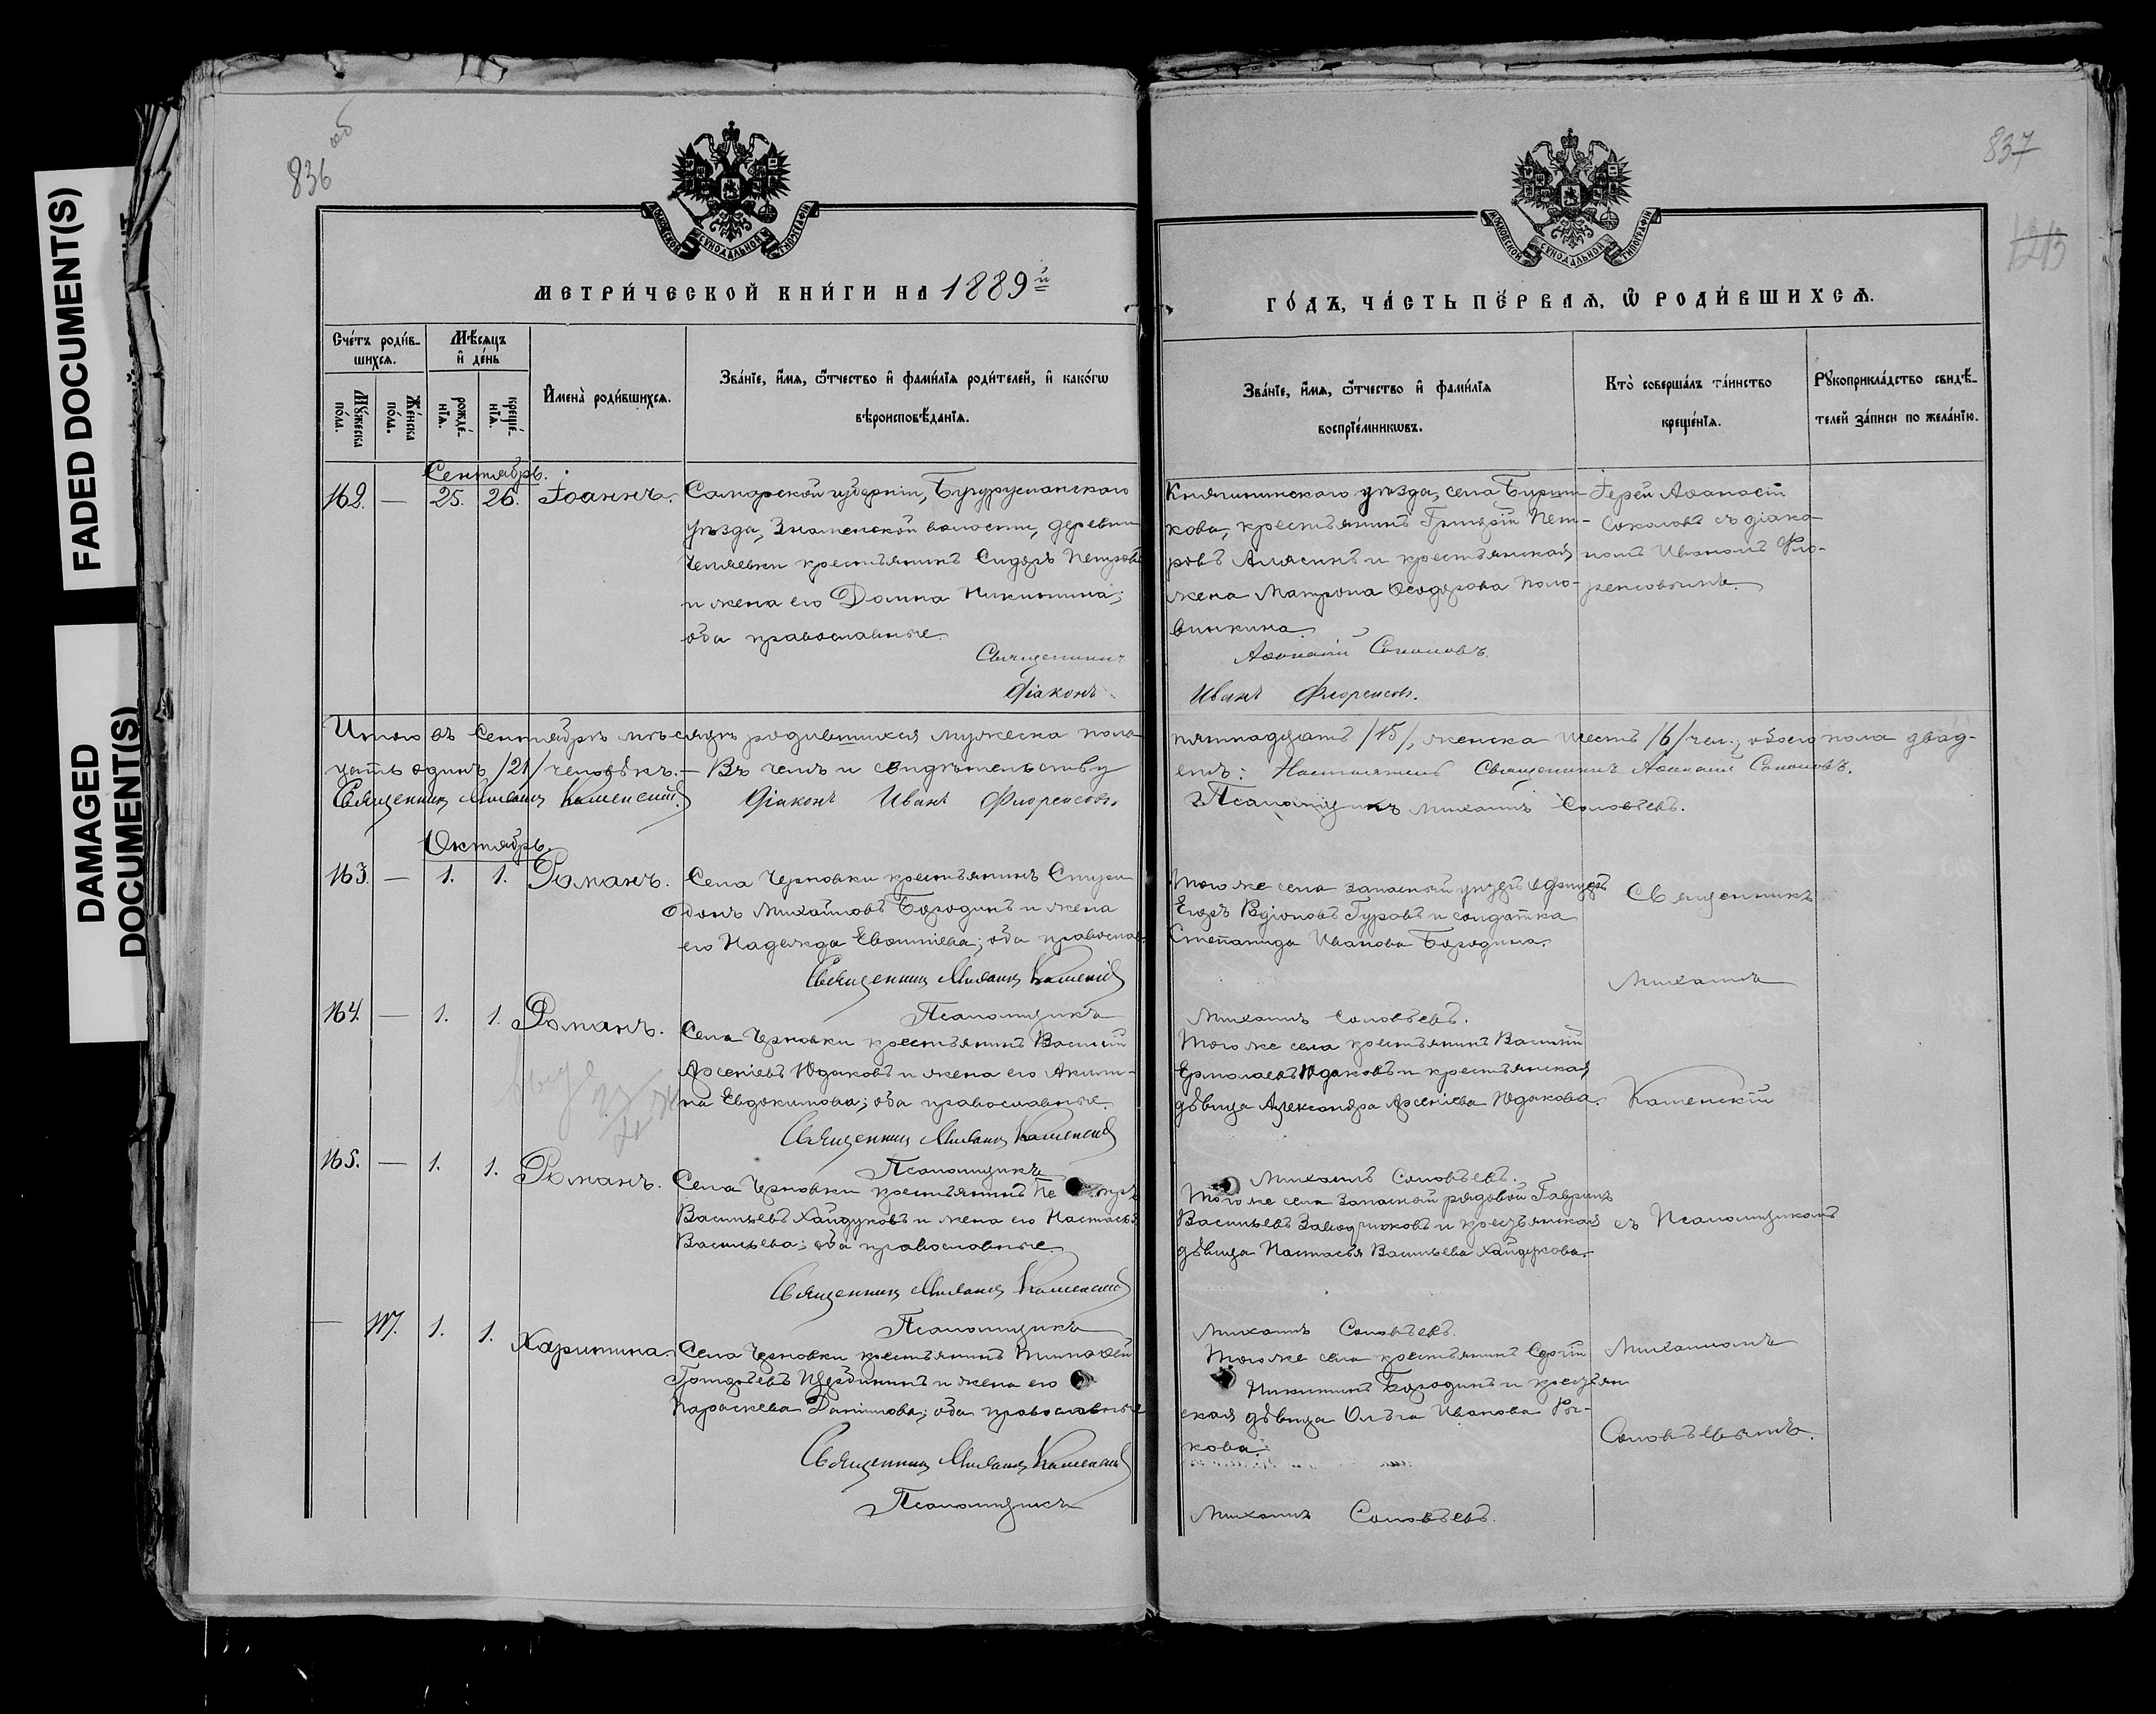 FADED DOCUMENT(S)
DAMAGED
DOCUMENT(S)
836 об
837
МОСКОВСКОЙ СѴНОДАЛЬНОЙ ТИПОГРАФІИ
МОСКОВСКОЙ СѴНОДАЛЬНОЙ ТИПОГРАФІИ
МЕТРИ́ЧЕСКОЙ КНИ́ГИ НА 1889й
ГО́ДЪ, ЧА́СТЬ ПЕ́РВАѦ, Ѡ҆ РОДИ́ВШИХСѦ.
Сче́тъ роди́в-
шихсѧ.
Мꙋ́жеска по́ла.
Же́нска по́ла.
Мѣ́сяцъ
и҆ де́нь
рожде́-
нїѧ.
креще́-
нїѧ.
И҆мена̀ роди́вшихсѧ.
Зва́нїе, и҆́мѧ, ѻ҆́тчество и҆ фами́лїѧ роди́телей, и҆ како́гѡ
вѣроисповѣ́данїѧ.
Зва́нїе, и҆́мѧ, ѻ҆́тчество и҆ фами́лїѧ
воспрїе́мникѡвъ.
Кто̀ соверша́лъ та́инство
креще́нїѧ.
Рꙋкоприкла́дство свидѣ́-
телей за́писи по жела́нїю.
Сентябрь.
162. — 25. 26. Іоаннъ.
Самарской губерніи, Бугурусланскаго
уѣзда, Знаменской волости, деревни
крестьянинъ Сидоръ Петровъ
и жена его Домна Никитина;
оба православные.
Священникъ
Діаконъ
Княгининскаго уѣзда, села
кова, крестьянинъ Григорій Пет-
ровъ Алясинъ и крестьянская
жена Матрона Ѳеодорова Поло-
винкина.
Аѳанасій Соколовъ.
Иванъ Флоренсовъ.
Іерей Аѳанасій
Соколовъ съ діако-
номъ Иваномъ Фло-
ренсовымъ.
Итого въ Сентябрѣ мѣсяцѣ родившихся мужеска пола
пятнадцать /15/, женска шесть /6/ чел.; обоего пола двад-
цать одинъ /21/ человѣкъ. — Въ чемъ и свидѣтельству
емъ: Настоятель Священникъ Аѳанасій Соколовъ.
Священникъ Михаилъ Каменскій. Діаконъ Иванъ Флоренсовъ.
Псаломщикъ Михаилъ Соловьевъ.
Октябрь.
163. — 1. 1. Романъ.
Села Черновки крестьянинъ Спири
донъ Михайловъ Бородинъ и жена
его Надежда Евѳиміева; оба православ.
Священникъ Михаилъ Каменскій
Псаломщикъ
Того же села запасный унтеръ офицеръ
Егоръ Родіоновъ Гуровъ и солдатка
Степанида Иванова Бородина.
Михаилъ Соловьевъ.
Священникъ
Михаилъ
164. — 1. 1. Романъ.
Села Черновки крестьянинъ Василій
Арсеніевъ Юдаковъ и жена его Акили-
на Евдокимова; оба православные.
Священникъ Михаилъ Каменскій
Псаломщикъ
Того же села крестьянинъ Василій
Ермолаевъ Юдаковъ и крестьянская
дѣвица Александра Арсеніева Юдакова.
Михаилъ Соловьевъ.
Каменскій
165. — 1. 1. Романъ.
Села Черновки крестьянинъ
Васильевъ Хайдуковъ и жена его Настасья
Васильева; оба православные.
Священникъ Михаилъ Каменскій
Псаломщикъ
Того же села запасный рядовой Гаврiилъ
Васильевъ и крестьянская
дѣвица Настасья Васильева Хайдукова.
Михаилъ Соловьевъ.
съ Псаломщикомъ
— 117. 1. 1. Харитина.
Села Черновки крестьянинъ Тимоѳей
Григорьевъ Щербининъ и жена его
Параскева Данилова; оба православные
Священникъ Михаилъ Каменскій
Псаломщикъ
Того же села крестьянинъ Сергій
Никитинъ Бородинъ и крестьян
ская дѣвица Ольга Иванова
кова.
Михаилъ Соловьевъ.
Михаиломъ
Соловьевымъ.